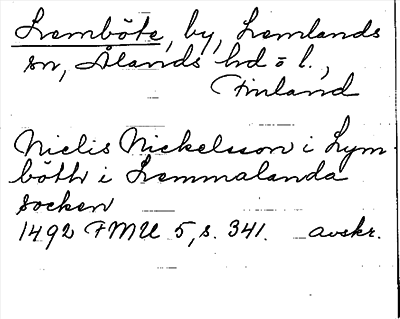 Lemböte, by, Lemlands
sn, Ålands hd o l.,
Finland
Nielis Nickelsson i Lym-
böthe i Lemmalanda
socken
1492 FMU 5, s. 341. avskr.